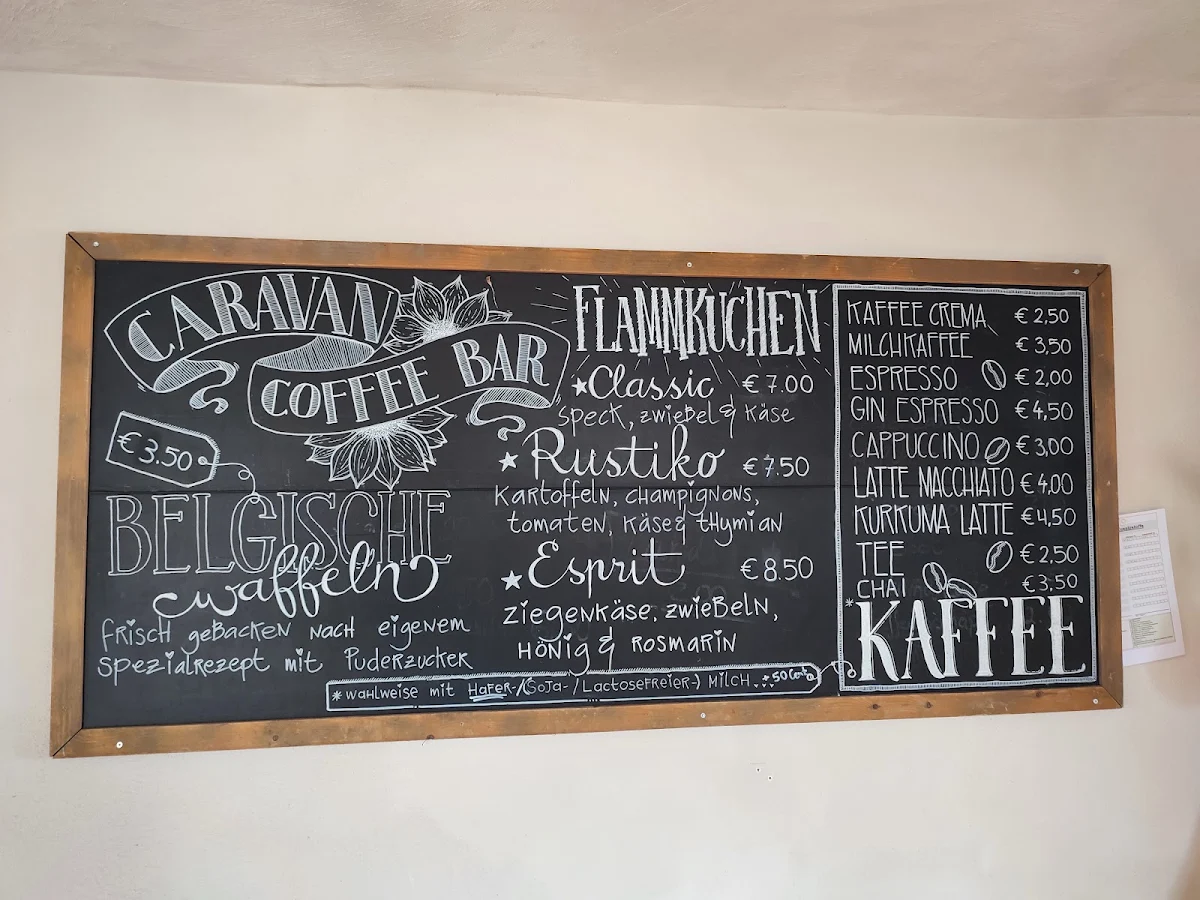 CARAVAN
COFFEE BAR
€3.50
BELGISCHE
waffeln
frisch gebacken nach eigenem
spezialrezept mit Puderzucker
FLAMMKUCHEN
Classic €7.00
Speck, zwiebel & Käse
Rustiko €7.50
Kartoffeln, Champignons,
tomaten, Käse & thymian
Esprit €8.50
Ziegenkäse, zwiebeln,
Honig & Rosmarin
*wahlweise mit Hafer-/(Soja-/Lactosefreier-) Milch +50 Cent
KAFFEE CREMA €2,50
MILCHKAFFEE €3,50
ESPRESSO €2,00
GIN ESPRESSO €4,50
CAPPUCCINO €3,00
LATTE MACCHIATO €4,00
KURKUMA LATTE €4,50
TEE €2,50
CHAI €3,50
*KAFFEE